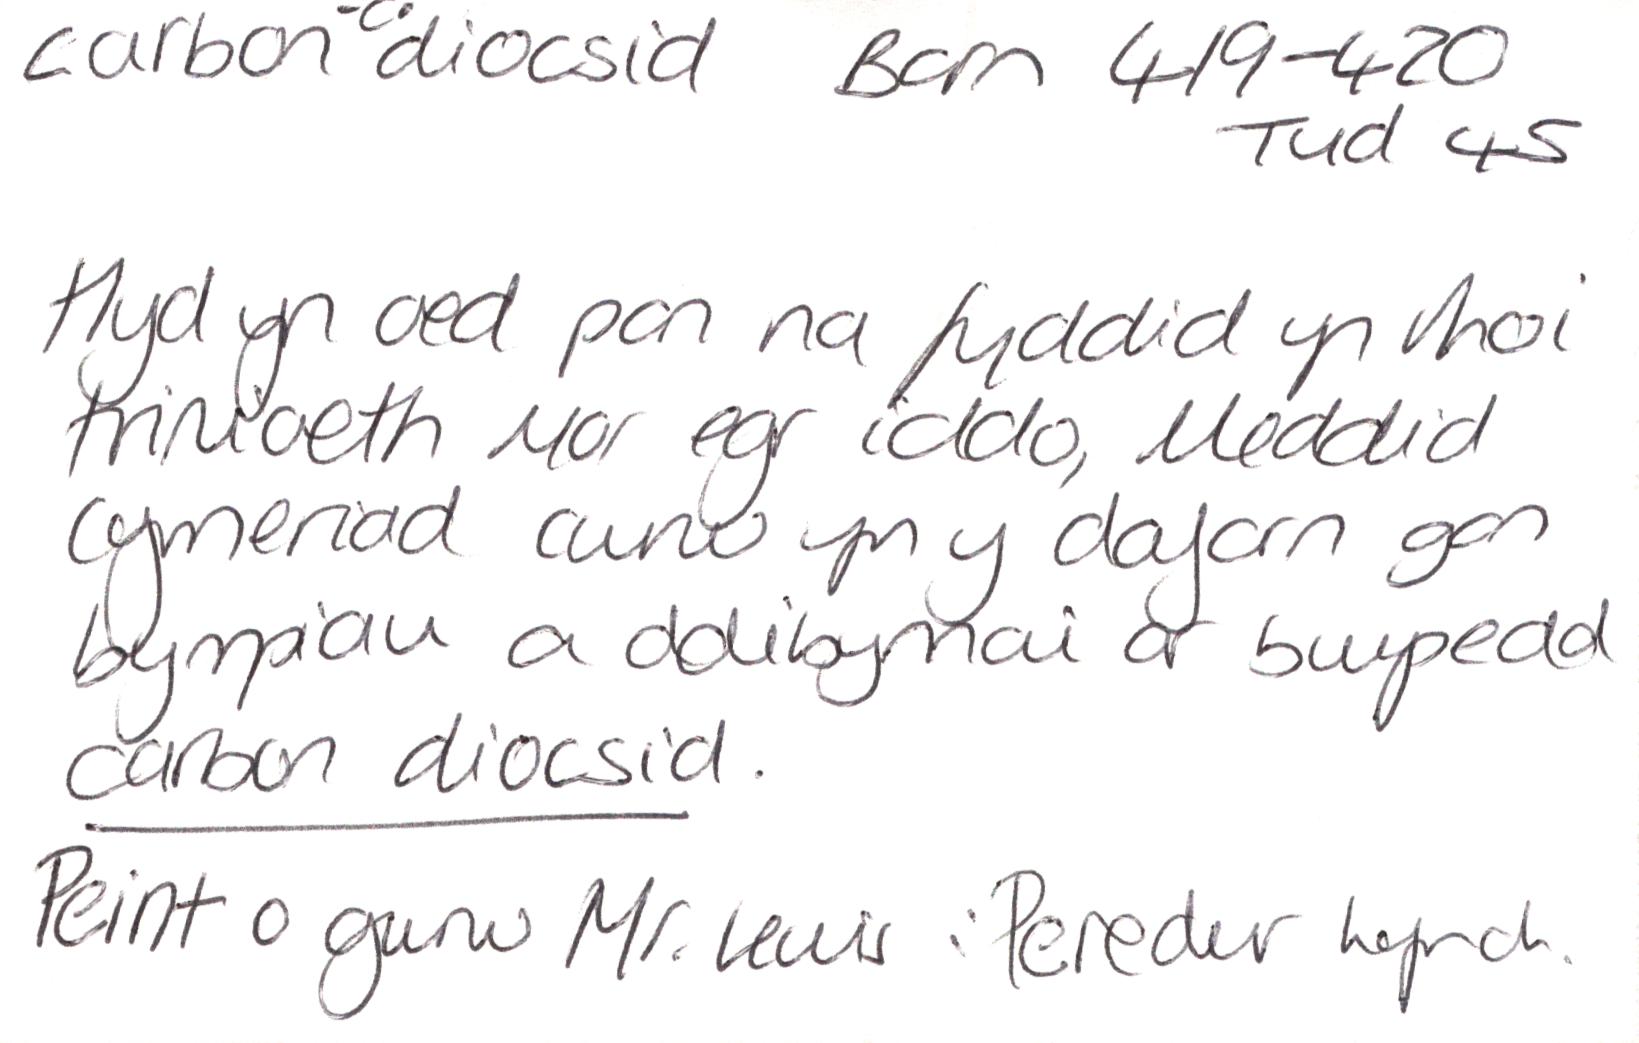 carbon -c. diocsid Barn 419-420
Tud 45
Hyd yn oed pan na fyddid yn rhoi
triniaeth mor egr iddo, Meddid
cymeriad cwrw yn y dafarn gan
bympiau a ddibynnai ar bwysedd
carbon diocsid.
Peint o gwrw Mr. Lewis : Peredur Lynch.